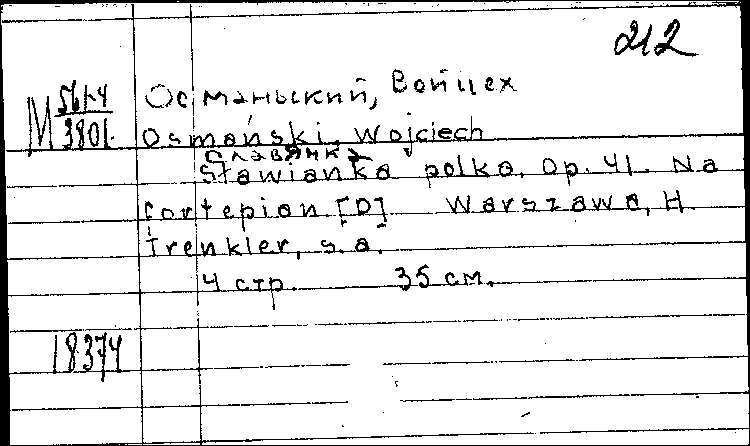 212
М 56г4 Османьский, Войцех
3801. Osmański, Wojciech
Славянка
Sławianka polka. Op. 41. Na
fortepian. [D] Warszawa, H.
Trenkler, s. a.
4 стр. 35 см.
18374